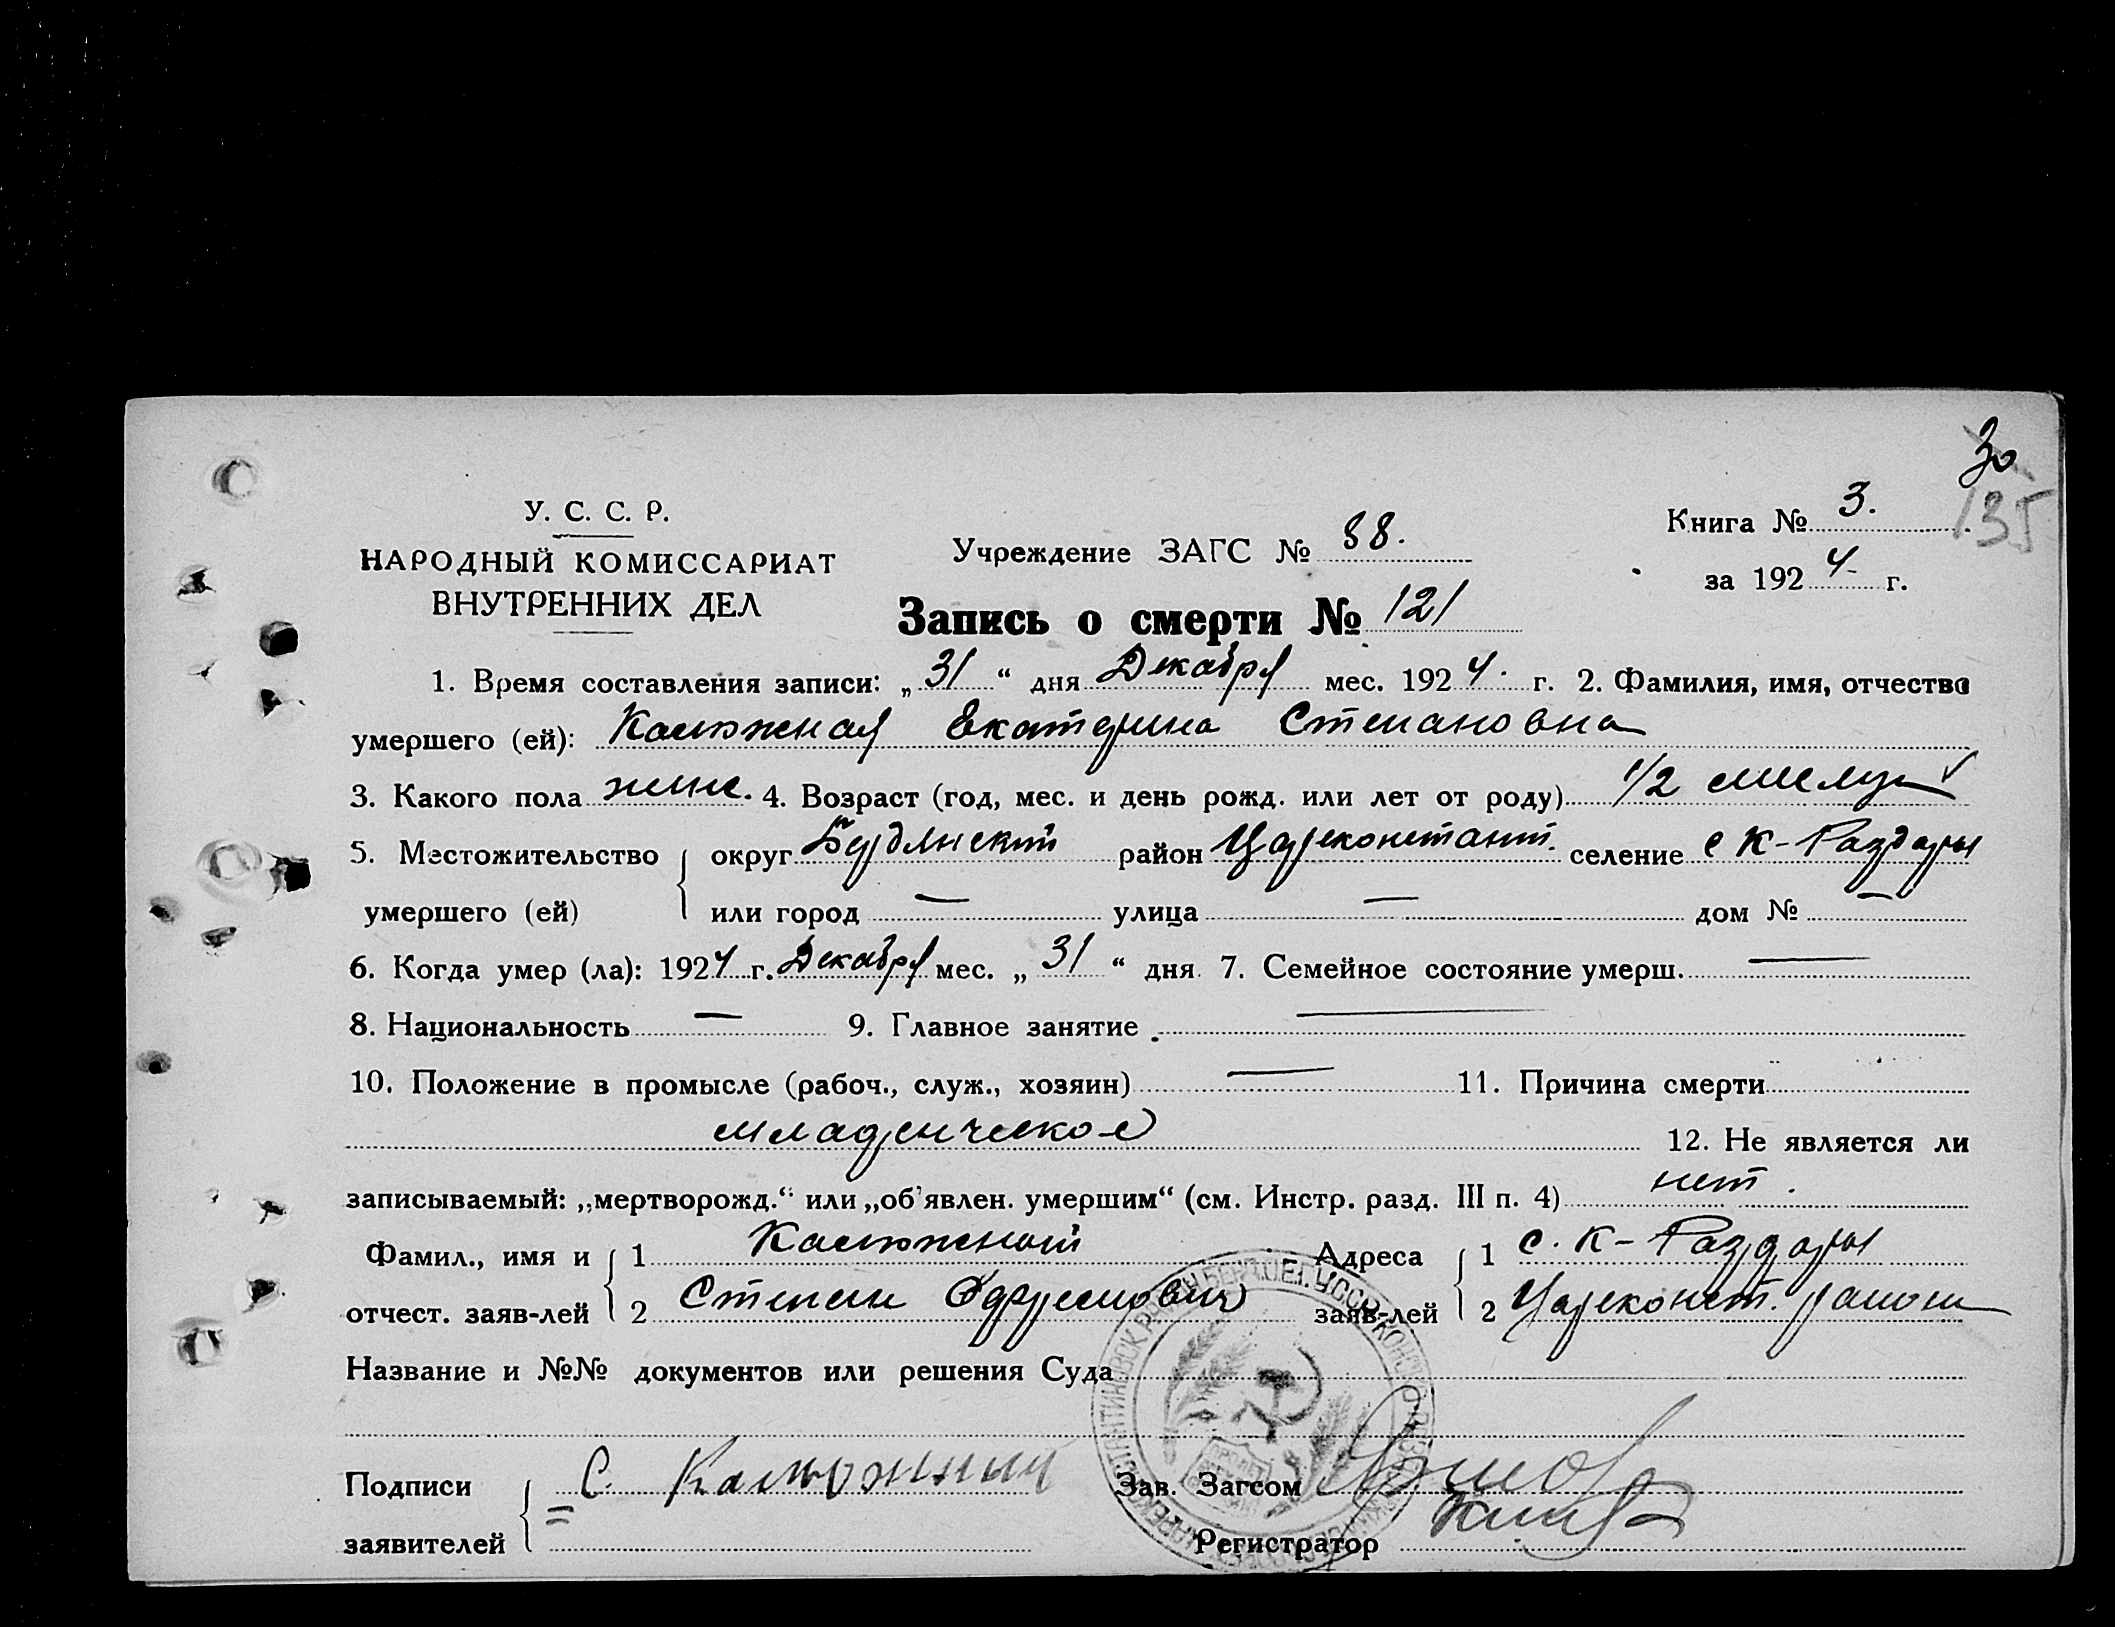 30
135
У. С. С. Р.
НАРОДНЫЙ КОМИССАРИАТ
ВНУТРЕННИХ ДЕЛ
Учреждение ЗАГС № 88.
Книга № 3.
за 1924 г.
Запись о смерти № 121
1. Время составления записи: „31“ дня Декабря мес. 1924. г. 2. Фамилия, имя, отчество
умершего (ей): Калюжная Екатерина Степановна
3. Какого пола женс. 4. Возраст (год, мес. и день рожд. или лет от роду) 1/2 месяца
5. Местожительство округ Бердянский район Цареконстант. селение с К-Раздоры
умершего (ей) или город — улица — дом № —
6. Когда умер (ла): 1924 г. Декабря мес. „31“ дня 7. Семейное состояние умерш. —
8. Национальность — 9. Главное занятие —
10. Положение в промысле (рабоч., служ., хозяин) — 11. Причина смерти
младенческое 12. Не является ли
записываемый: „мертворожд.“ или „об'явлен. умершим“ (см. Инстр. разд. III п. 4) нет.
Фамил., имя и 1 Калюжный Адреса 1 с. К-Раздоры
отчест. заяв-лей 2 Степан заяв-лей 2 Цареконст. район
Название и №№ документов или решения Суда
Подписи С. Калюжний Зав. Загсом
заявителей Регистратор